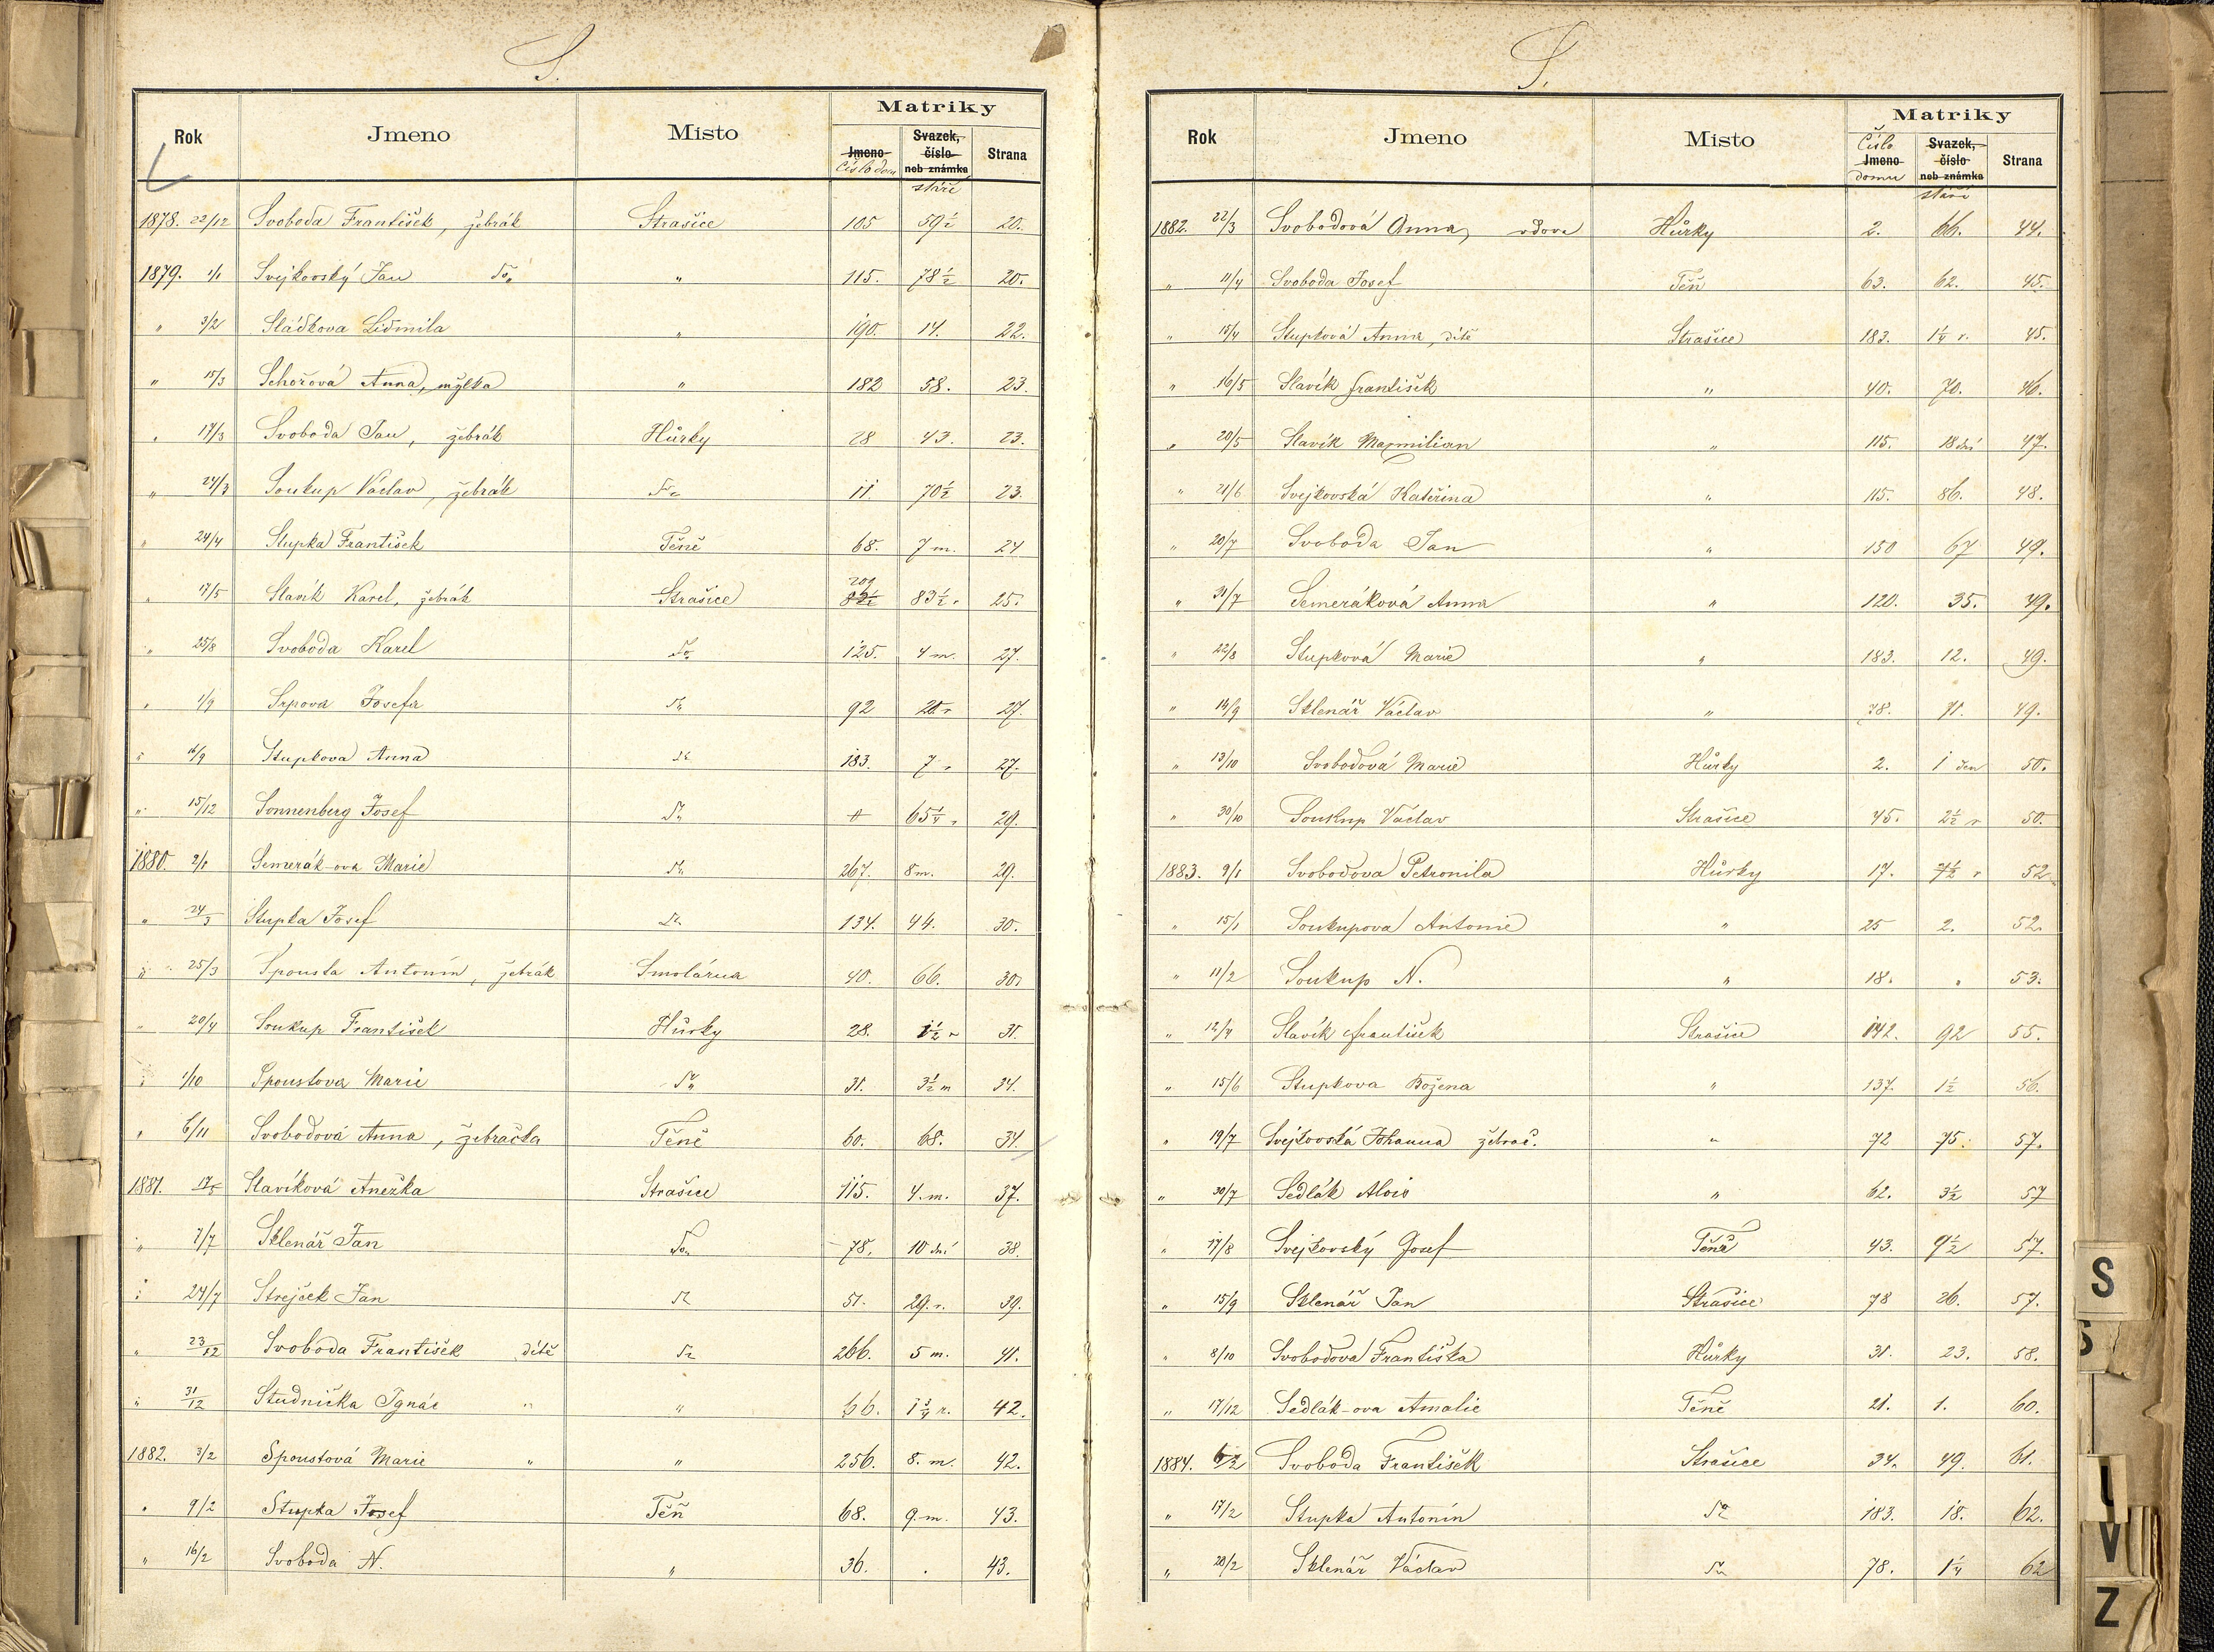 S.
Matriky
Rok Jmeno Misto Jmeno Svazek, číslo neb známka Strana
Číslo domu stáří
1878. 22/12 Svoboda František, žebrák Strašice 105 59 1/2 20.
1879. 1/1 Svejkovský Jan do " 115. 78 1/2 20.
" 3/2 Sládkova Lidmila " 190. 14. 22.
" 15/3 Schořová Anna, " 182 58. 23.
" 17/3 Svoboda Jan, žebrák Hůrky 28 43. 23.
" 24/3 Soukup Václav, žebrák do 11. 70 1/2 23.
" 24/4 Stupka František Těně 68. 7 m. 24
" 17/5 Slavík Karel, žebrák Strašice 209 83 1/2 r 25.
" 25/8 Svoboda Karel do 125. 4 m. 27.
" 1/9 Srpova Josefa do 92 27.
" 16/9 Stupkova Anna do 183. 7 r 27.
" 15/12 Sonnenberg Josef do 65 1/4 r 29.
1880. 2/1 Semerák-ova Marie do 267. 8 m. 29.
" 24/3 Stupka Josef do 134. 44. 30.
" 25/3 Spousta Antonín, žebrák Smolárna 40. 66. 30.
" 20/4 Soukup František Hůrky 28. 1 1/2 r 31.
" 1/10 Spoustova Marie do 31. 3 1/2 m 34.
" 6/11 Svobodová Anna, žebračka Těně 60. 68. 34.
1881. 17/5 Slavíková Anežka Strašice 115. 4. m. 37.
" 7/7 Sklenář Jan do 78. 10 dní 38.
" 24/7 Strejček Jan do 51. 29. r. 39.
" 23/12 Svoboda František dítě do 266. 5 m. 41.
" 31/12 Studnička Ignác " " 66. 1 3/4 r. 42.
1882. 3/2 Spoustová Marie " " 256. 8. m. 42.
" 9/2 Stupka Josef Těň 68. 9. m. 43.
" 16/2 Svoboda N. " 36. . 43.
S.
Matriky
Rok Jmeno Misto Číslo Jmeno domu Svazek, číslo neb známka Strana
stáří
1882. 22/3 Svobodová Anna, vdova Hůrky 2. 66. 44.
" 11/4 Svoboda Josef Těň 63. 62. 45.
" 15/4 Stupková Anna, dítě Strašice 183. 1 1/4 r. 45.
" 16/5 Slavík František " 40. 70. 46.
" 20/5 Slavík Maxmilian " 115. 18 dní 47.
" 21/6 Svejkovská Kateřina " 115. 86. 48.
" 20/7 Svoboda Jan " 150 67 49.
" 31/7 Semeráková Anna " 120. 35. 49.
" 22/8 Stupková Marie " 183. 12. 49.
" 14/9 Sklenář Václav " 78. 71. 49.
" 13/10 Svobodová Marie Hůrky 2. 1 den 50.
" 30/10 Soukup Václav Strašice 45. 2 1/2 r 50.
1883. 9/1 Svobodova Petronila Hůrky 17. r 52.
" 15/1 Soukupova Antonie " 25 2. 52.
" 11/2 Soukup N. " 18. " 53.
" 12/4 Slavík František Strašice 142. 92 55.
" 15/6 Stupkova Božena " 137. 1 1/2 56.
" 19/7 Svejkovská Johanna žebrač. " 72 75. 57.
" 30/7 Sedlák Alois " 62. 3 1/2 57
" 17/8 Svejkovský Josef Těně 43. 57.
" 15/9 Sklenář Jan Strašice 78 26. 57.
" 8/10 Svobodova Františka Hůrky 31. 23. 58.
" 17/12 Sedlák-ova Amalie Těně 21. 1. 60.
1884. 6/2 Svoboda František Strašice 34. 49. 61.
" 17/2 Stupka Antonín do 183. 18. 62.
" 20/2 Sklenář Václav do 78. 1 1/4 62
S
S
U
V
Z